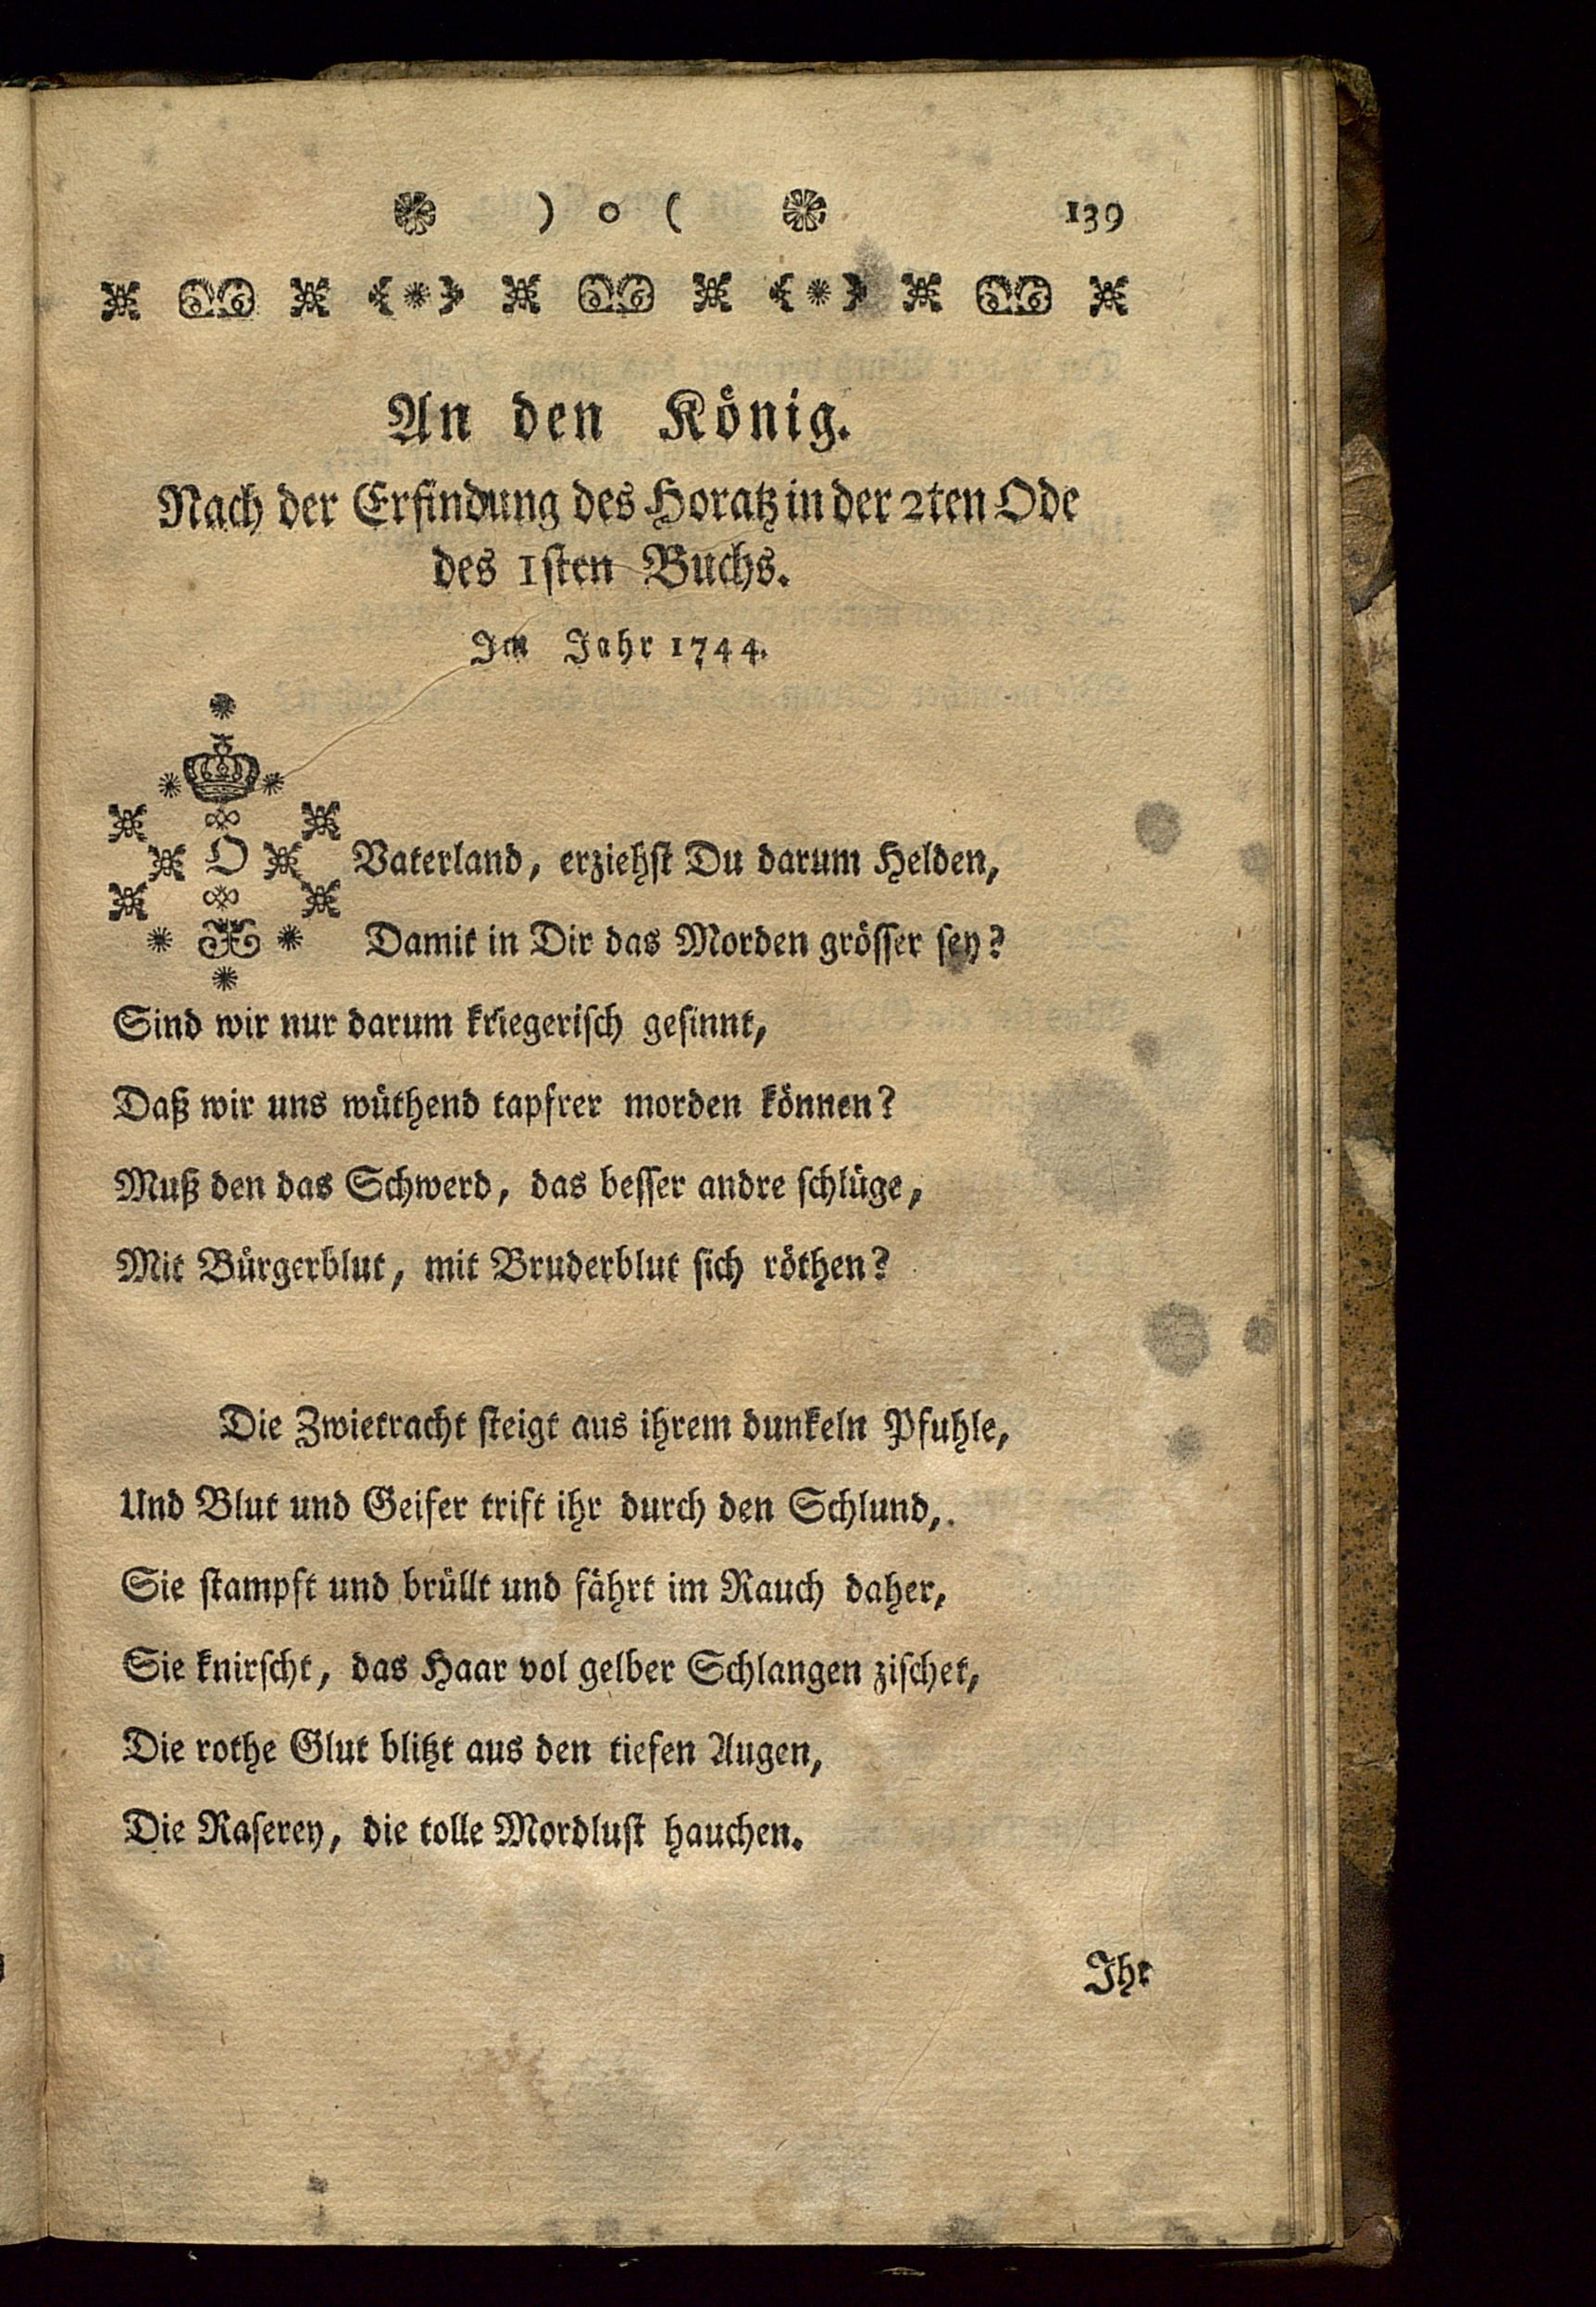 ) o ( 139
An den König.
Nach der Erfindung des Horatz in der 2ten Ode
des 1sten Buchs.
Im Jahr 1744.
O Vaterland, erziehst Du darum Helden,
Damit in Dir das Morden grösser sey?
Sind wir nur darum kriegerisch gesinnt,
Daß wir uns wüthend tapfrer morden können?
Muß den das Schwerd, das besser andre schlüge,
Mit Bürgerblut, mit Bruderblut sich röthen?
Die Zwietracht steigt aus ihrem dunkeln Pfuhle,
Und Blut und Geifer trift ihr durch den Schlund,
Sie stampft und brüllt und fährt im Rauch daher,
Sie knirscht, das Haar vol gelber Schlangen zischet,
Die rothe Glut blitzt aus den tiefen Augen,
Die Raserey, die tolle Mordlust hauchen.
Ihr